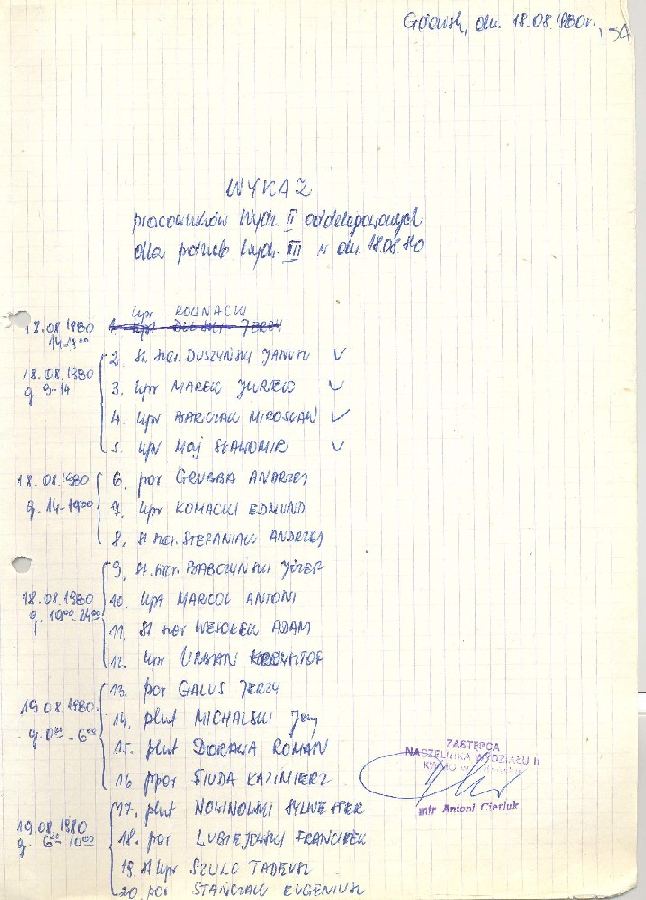 Gdańsk, dn. 18.08.1980r.
WYKAZ
pracowników Wydz. II oddelegowanych
dla potrzeb Wydz. III w dn. 18.08.80
18.08.1980
kpr
14-19⁰⁰
2. st. szer. DUSZYŃSKI JANUSZ ✓
18.08.1980
g 9-14
3. kpr MAREK JUREK ✓
4. kpr MIROSŁAW ✓
5. kpr MAJ SŁAWOMIR ✓
18.08.1980
6. por GRUBBA ANDRZEJ
g. 14-19⁰⁰
7. kpr KOMACKI EDMUND
8. st szer. STEFANIAK ANDRZEJ
9. st. szer. JÓZEF
18.08.1980
10. kpr MARCOL ANTONI
g. 19⁰⁰-24⁰⁰
11. st szer ADAM
12. kpr URBAN KRZYSZTOF
13. por GALUS JERZY
19.08.1980
14. plut MICHALSKI Jerzy
g. 0⁰⁰-6⁰⁰
15. plut DORAWA ROMAN
16 ppor SIUDA KAZIMIERZ
17. plut NOWINOWSKI SYLWESTER
19.08.1980
18. por FRANCISZEK
g. 6⁰⁰-10⁰⁰
19 st kpr SZULC TADEUSZ
20. por STAŃCZAK EUGENIUSZ
ZASTĘPCA
NACZELNIKA WYDZIAŁU II
mjr Antoni Cieśluk